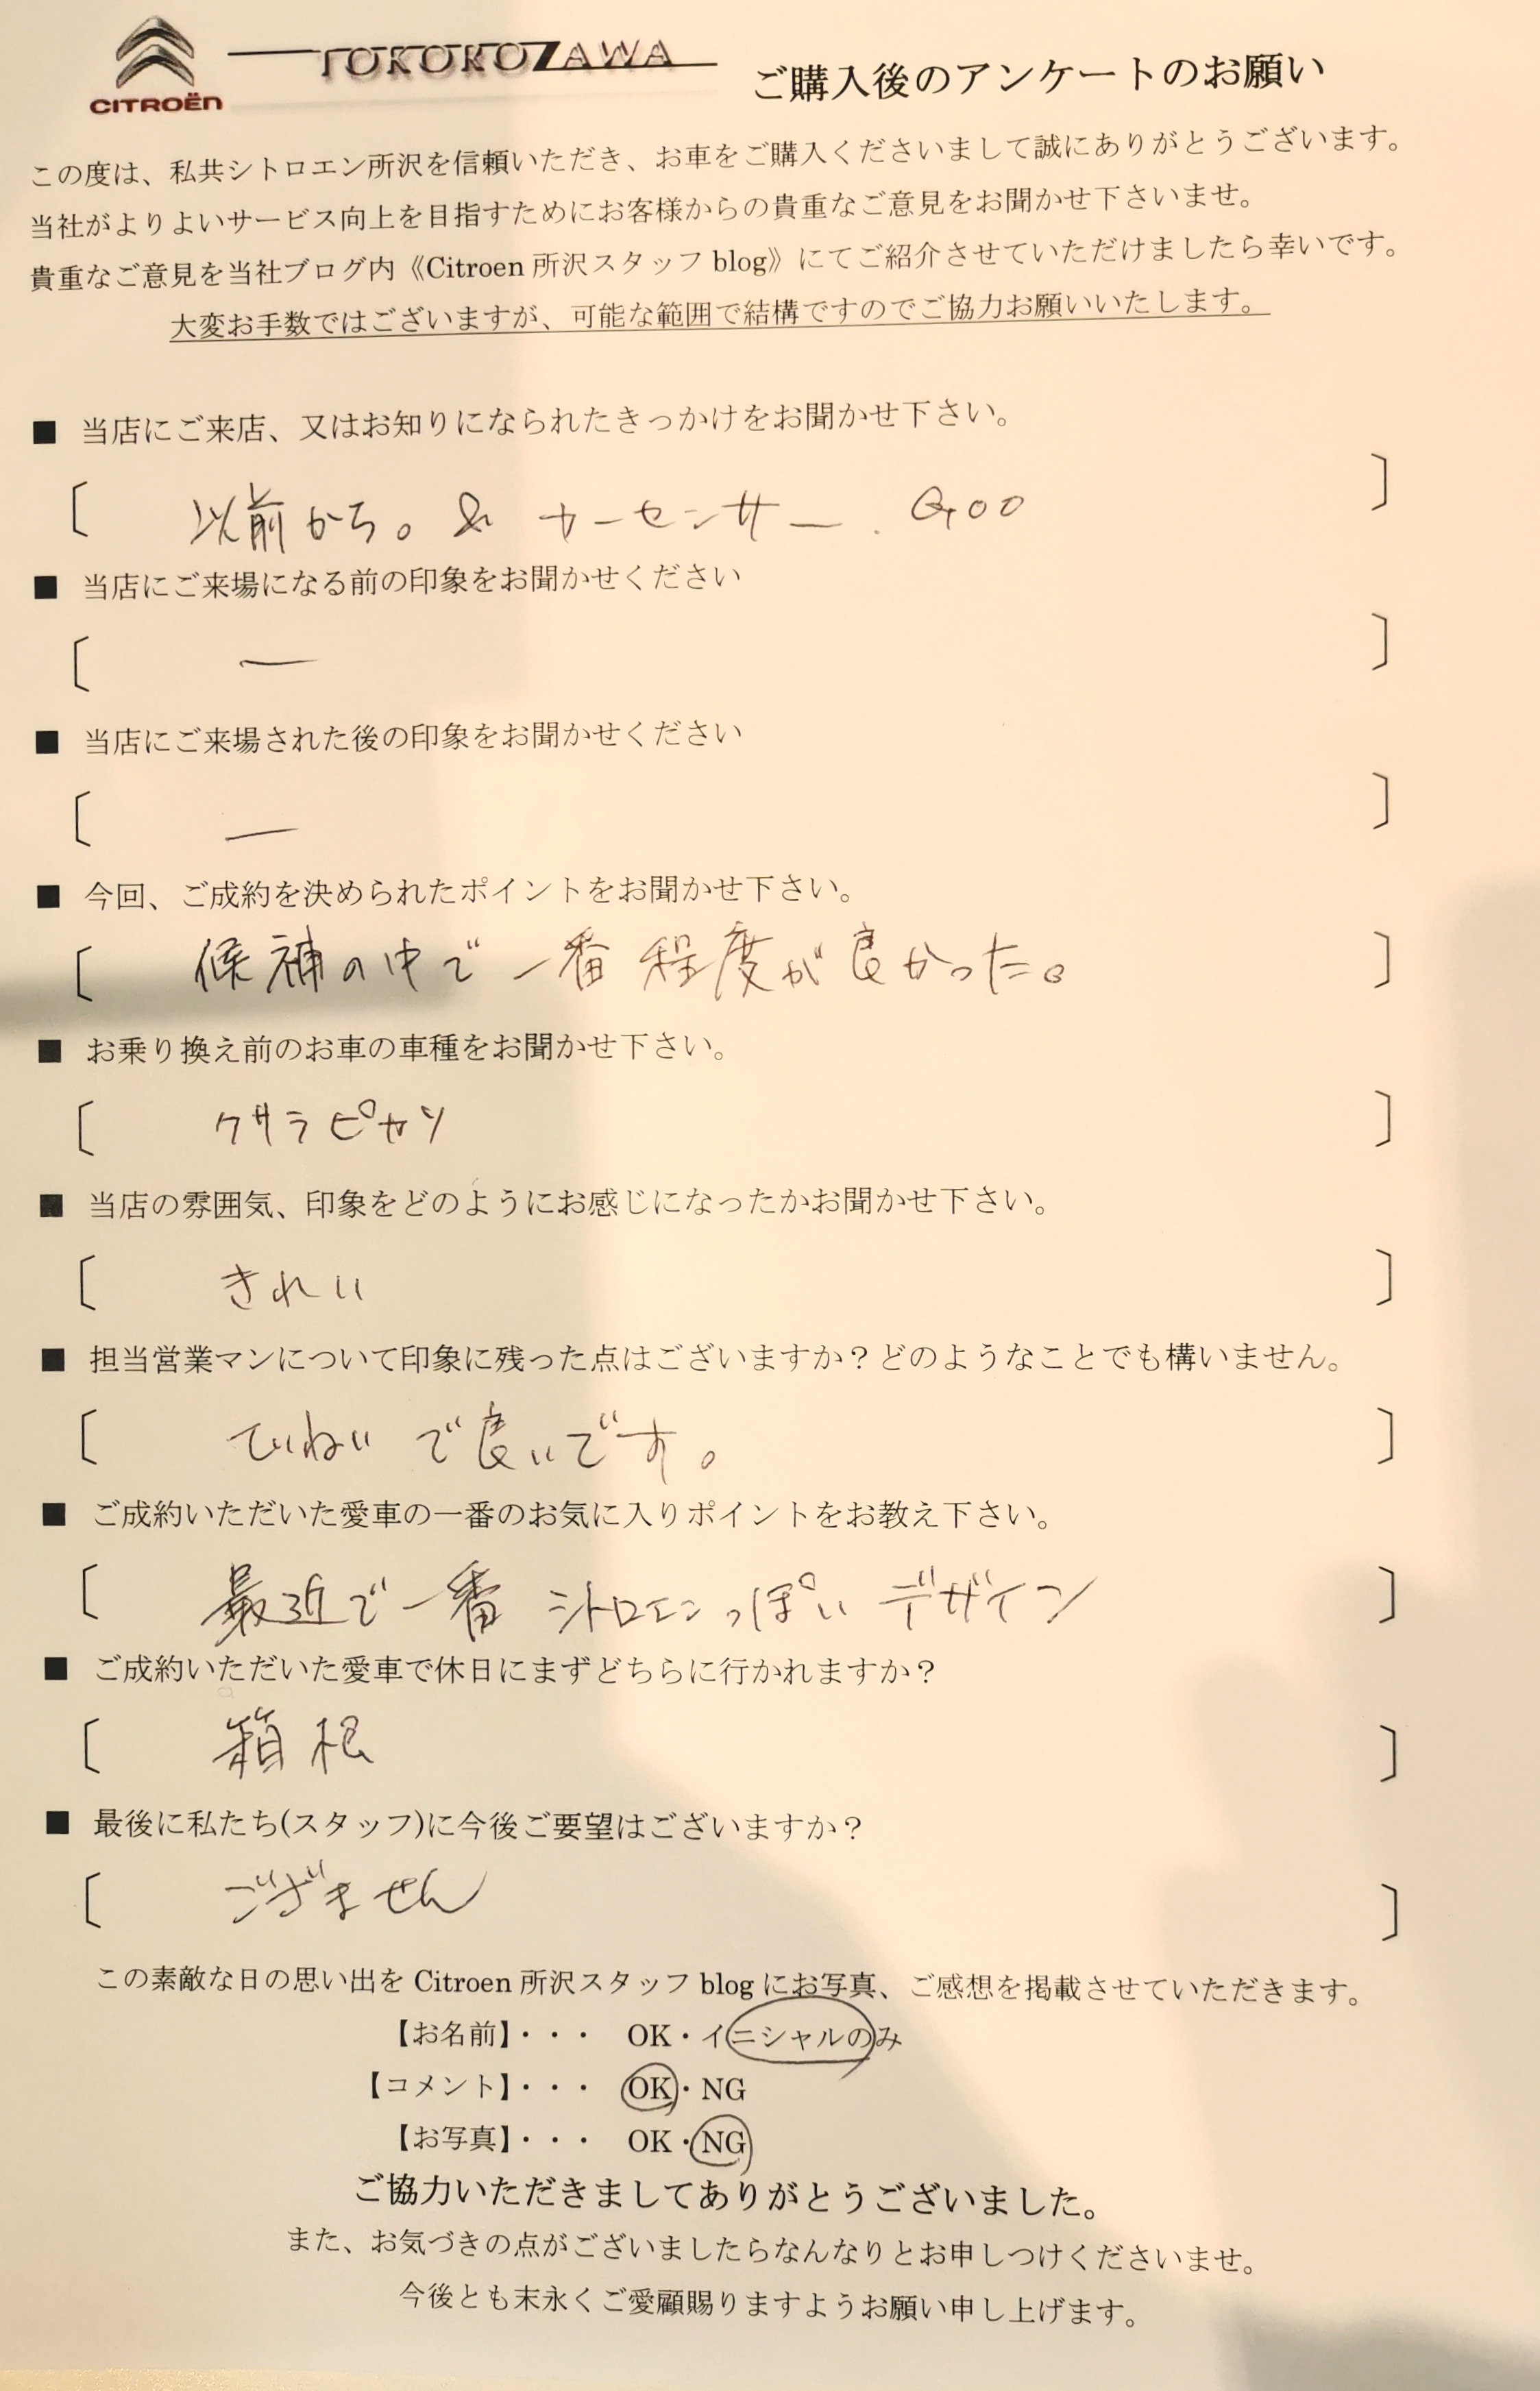 CITROËN
TOKOROZAWA ご購入後のアンケートのお願い
この度は、私共シトロエン所沢を信頼いただき、お車をご購入くださいまして誠にありがとうございます。
当社がよりよいサービス向上を目指すためにお客様からの貴重なご意見をお聞かせ下さいませ。
貴重なご意見を当社ブログ内《Citroen 所沢スタッフ blog》にてご紹介させていただけましたら幸いです。
大変お手数ではございますが、可能な範囲で結構ですのでご協力お願いいたします。
■ 当店にご来店、又はお知りになられたきっかけをお聞かせ下さい。
〔 以前から。& カーセンサー. Goo 〕
■ 当店にご来場になる前の印象をお聞かせください
〔 ― 〕
■ 当店にご来場された後の印象をお聞かせください
〔 ― 〕
■ 今回、ご成約を決められたポイントをお聞かせ下さい。
〔 候補の中で一番程度が良かった。 〕
■ お乗り換え前のお車の車種をお聞かせ下さい。
〔 クサラピカソ 〕
■ 当店の雰囲気、印象をどのようにお感じになったかお聞かせ下さい。
〔 きれい 〕
■ 担当営業マンについて印象に残った点はございますか？どのようなことでも構いません。
〔 ていねいで良いです。 〕
■ ご成約いただいた愛車の一番のお気に入りポイントをお教え下さい。
〔 最近で一番シトロエンっぽいデザイン 〕
■ ご成約いただいた愛車で休日にまずどちらに行かれますか？
〔 箱根 〕
■ 最後に私たち(スタッフ)に今後ご要望はございますか？
〔 ござません 〕
この素敵な日の思い出を Citroen 所沢スタッフ blog にお写真、ご感想を掲載させていただきます。
【お名前】・・・ OK・イニシャルのみ
【コメント】・・・ OK・NG
【お写真】・・・ OK・NG
ご協力いただきましてありがとうございました。
また、お気づきの点がございましたらなんなりとお申しつけくださいませ。
今後とも末永くご愛顧賜りますようお願い申し上げます。